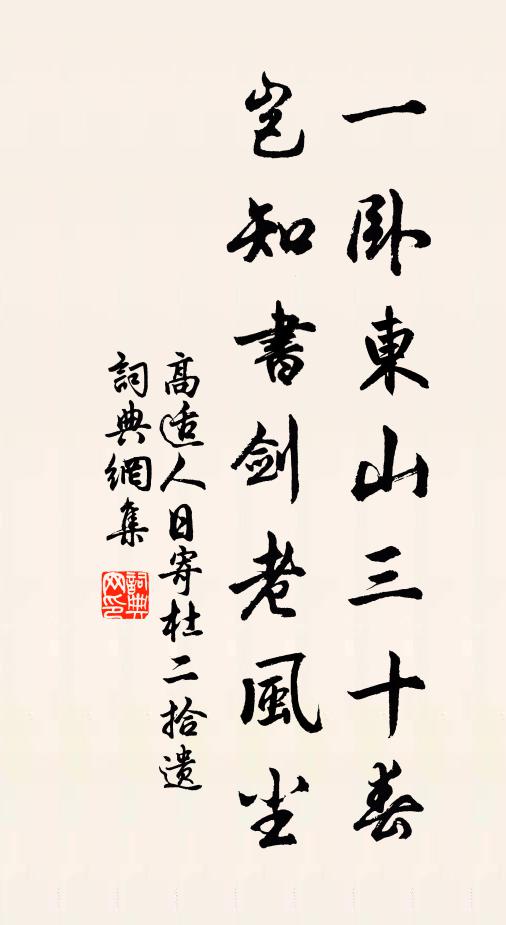 一卧東山三十春
豈知書劍老風尘
高适人日寄杜二拾遗
詞典網集
詞典网印